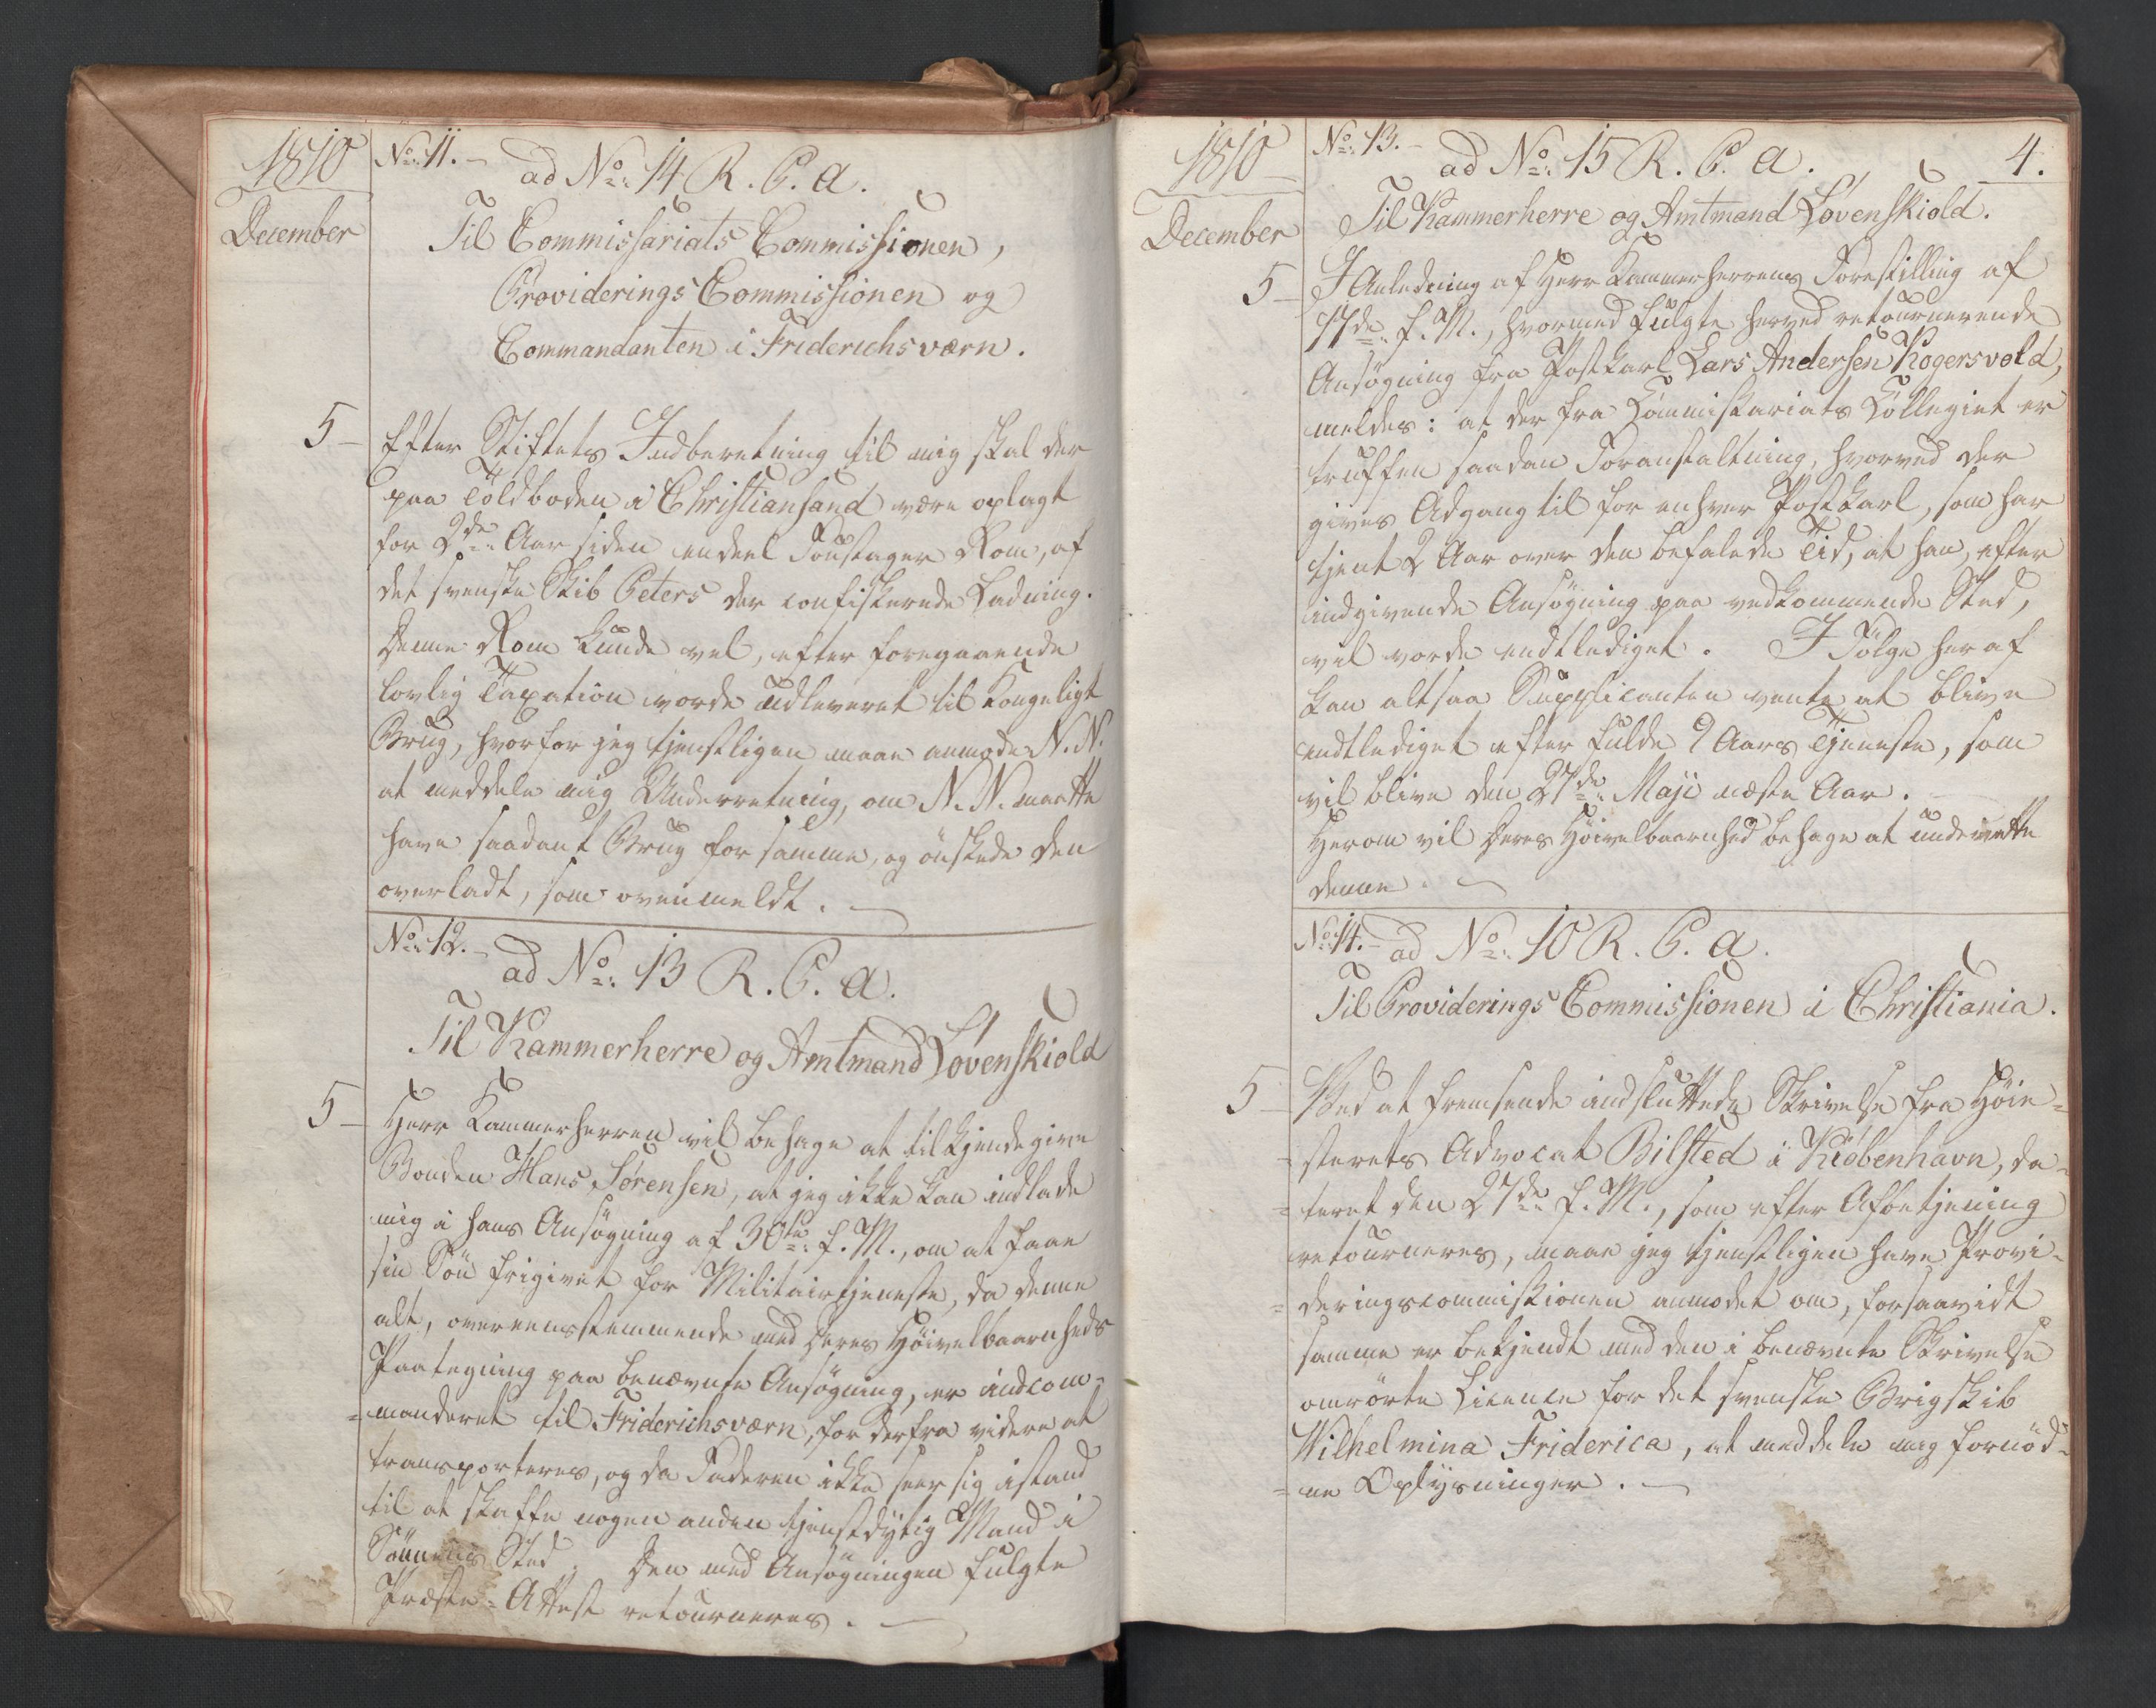 1810
December
No: 11.-
ad No: 14 R. C. a.
Til Commissariats Commissionen,
Providerings Commissionen og
Commandanten i Friderichsværn.
5-
Efter Stiftets Indberetning til mig skal der
paa Toldboden i Christiansand være oplagt
for 2de Aar siden endeel Foustager Rom, af
det svenske Skib Peters der confiskerede Ladning.
Denne Rom kunde vel, efter foregaaende
lovlig Taxation vorde udleveret til Kongeligt
Brug, hvorfor jeg tjenstligen maae anmode N. N.
at meddele mig Underretning, om N. N. maatte
have saadant Brug for samme, og önskede den
overladt, som ovenmeldt.
No: 12.-
ad No: 13 R. C. a.
Til Kammerherre og Amtmand Løvenskiold
5-
Herr Kammerherren vil behage at tilkjendegive
Bonden Hans Sørensen, at jeg ikke kan indlade
mig i hans Ansøgning af 30te f. M., om at faae
sin Sön frigivet for Militairtjeneste, da denne
alt, overeensstemmende med Deres Höivelbaarnheds
Paategning paa benævnte Ansögning, er indcom-
=manderet til Friderichsværn, for derfra videre at
transporteres, og da Faderen ikke seer sig istand
til at skaffe nogen anden tjenstdÿtig Mand i
Sönnens Sted. Den med Ansögningen fulgte
Præste-Attest retourneres.
1810
December
4.
No: 13.-
ad No: 15 R. C. a.
Til Kammerherre og Amtmand Løvenskiold.
5-
I Anledning af Herr Kammerherrens Forestilling af
17de f. M., hvormed fulgte herved retournerende
Ansögning fra Postkarl Lars Andersen Rogersvold,
meldes: at der fra Commissariats Collegiet er
truffen saadan Foranstaltning, hvorved der
gives Adgang til for enhver Postkarl, som har
tjent 2 Aar over den befalede Tid, at han, efter
indgivende Ansögning paa vedkommende Sted,
vil vorde entlediget. I Fölge heraf
kan altsaa Supplicanten vente at blive
entlediget efter fulde 9 Aars Tjeneste, som
vil blive den 27de Maji næste Aar.
Herom vil Deres Höivelbaarnhed behage at underrette
denne.
No: 14.-
ad No: 10 R. C. a.
Til Providerings Commissionen i Christiania.
5-
Ved at fremsende indsluttede Skrivelse fra Höie-
=sterets Advocat Bilsted i Kiöbenhavn, da-
=teret den 27de f. M., som efter Afbetjening
retourneres, maae jeg tjenstligen have Provi-
=deringscommissionen anmodet om, forsaavidt
samme er bekjendt med den i benævnte Skrivelse
omrörte Licence for det svenske Brigskib
Wilhelmina Friderica, at meddele mig fornöd-
=ne Oplÿsninger.